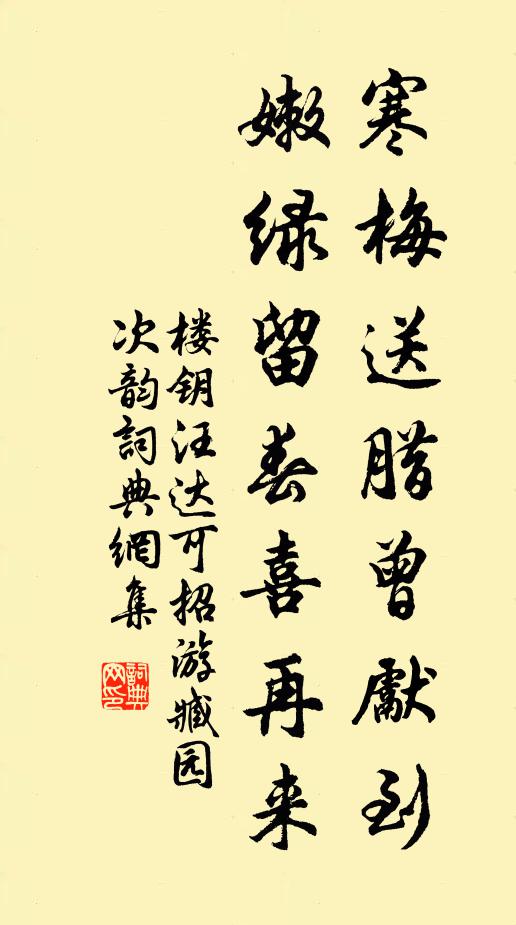 寒梅送腊曾獻到
嫩绿留春喜再来
楼钥汪达可招游臧园
次韵詞典網集
詞典网印